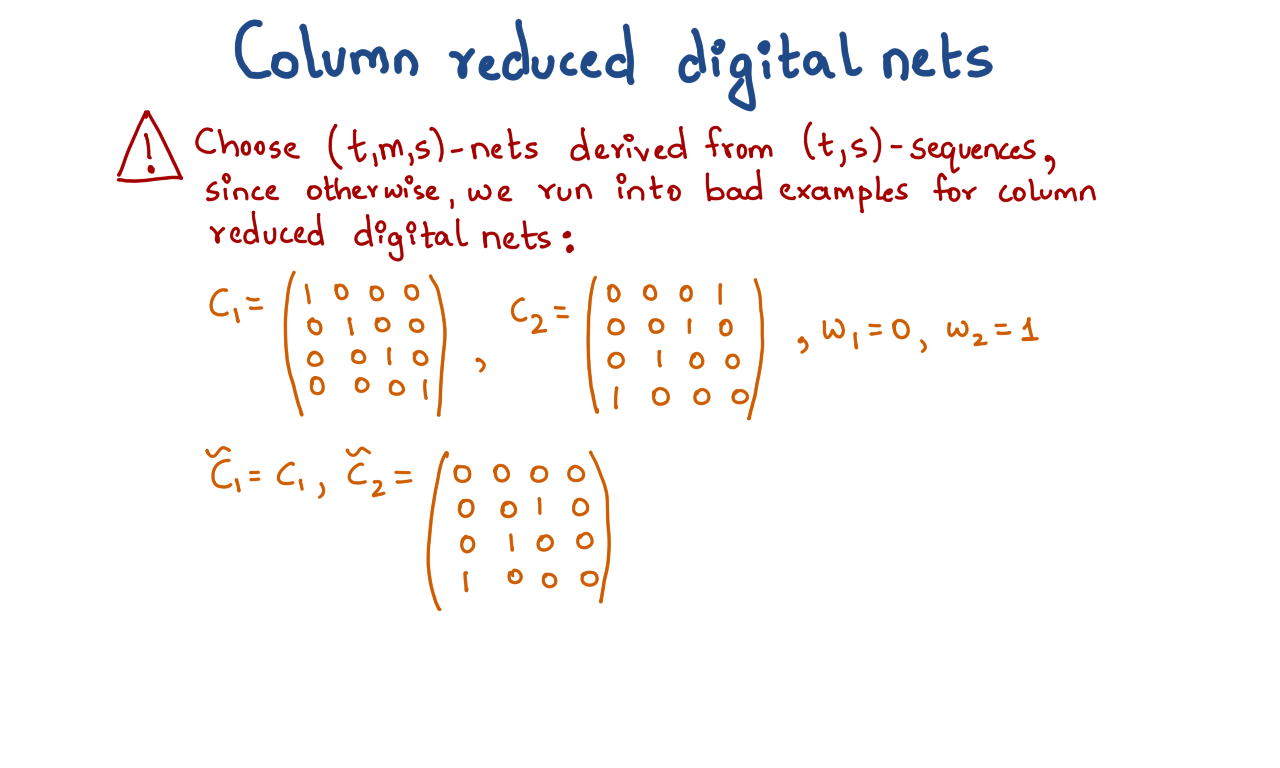 Column reduced digital nets
! Choose (t,m,s)-nets derived from (t,s)-sequences,
since otherwise, we run into bad examples for column
reduced digital nets:
C₁ = (1 0 0 0
0 1 0 0
0 0 1 0
0 0 0 1),
C₂ = (0 0 0 1
0 0 1 0
0 1 0 0
1 0 0 0), w₁ = 0, w₂ = 1
C̃₁ = C₁, C̃₂ = (0 0 0 0
0 0 1 0
0 1 0 0
1 0 0 0)